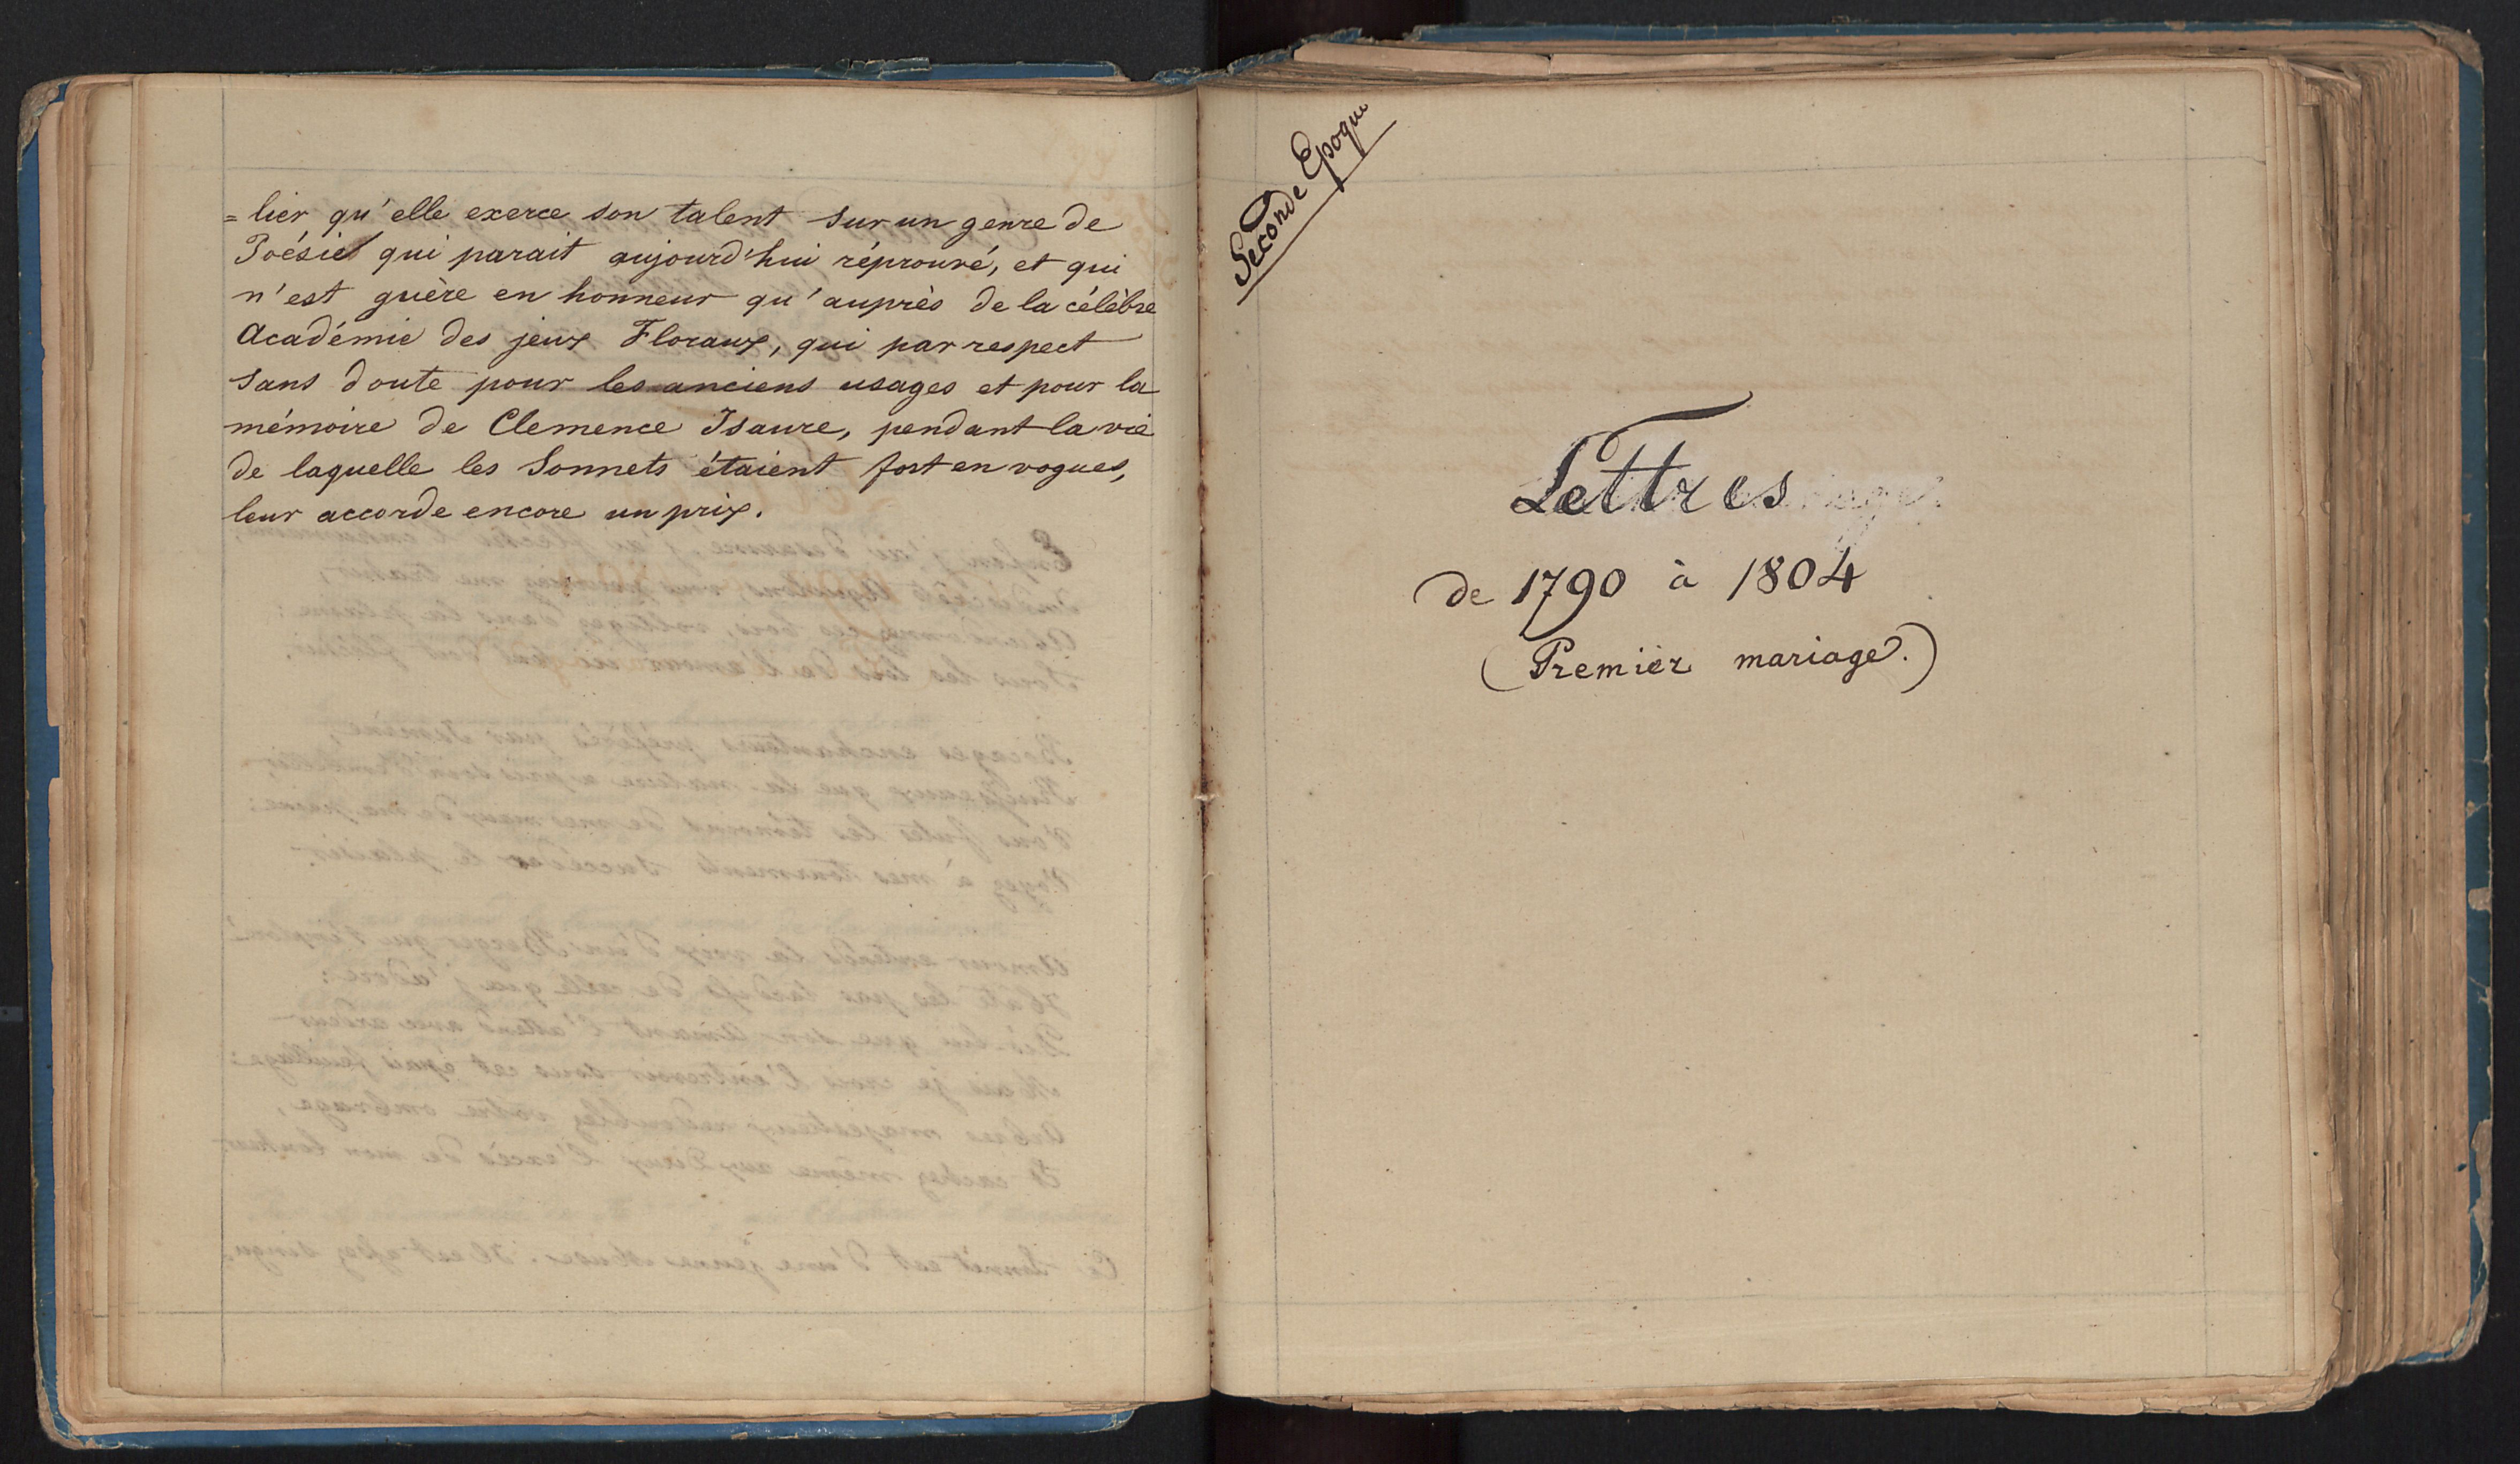 =lier qu'elle exerce son talent sur un genre de
Poésie qui parait aujourd'hui réprouvé, et qui
n'est guère en honneur qu'auprès de la célèbre
Académie des jeux Floraux, qui par respect
sans doute pour les anciens usages et pour la
mémoire de Clemence Isaure, pendant la vie
de laquelle les Sonnets étaient fort en vogues,
leur accorde encore un prix.
Seconde Epoque
Lettres
de 1790 à 1804
(Premier mariage.)